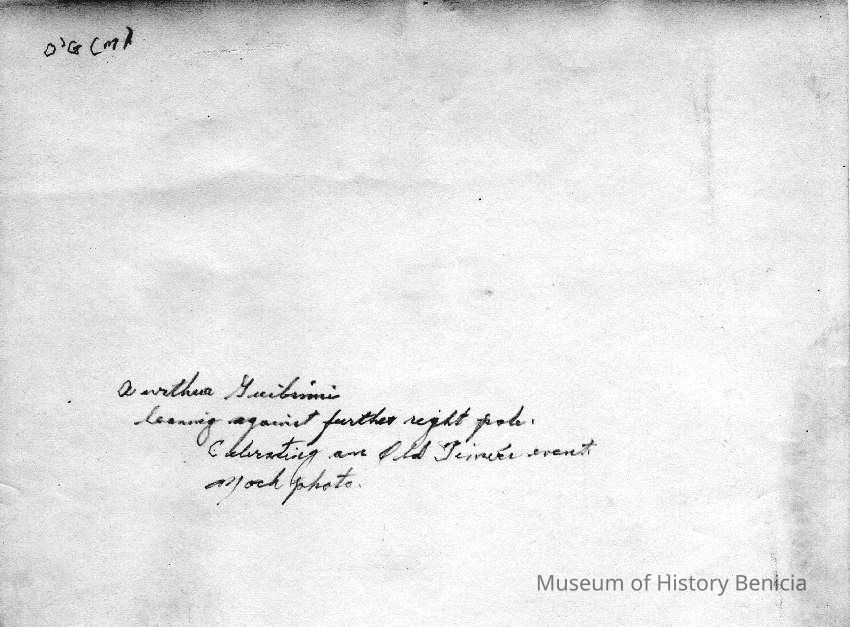 O'G (M)
leaning against further right pole.
Celebrating an Old Timers event
Mock photo.
Museum of History Benicia